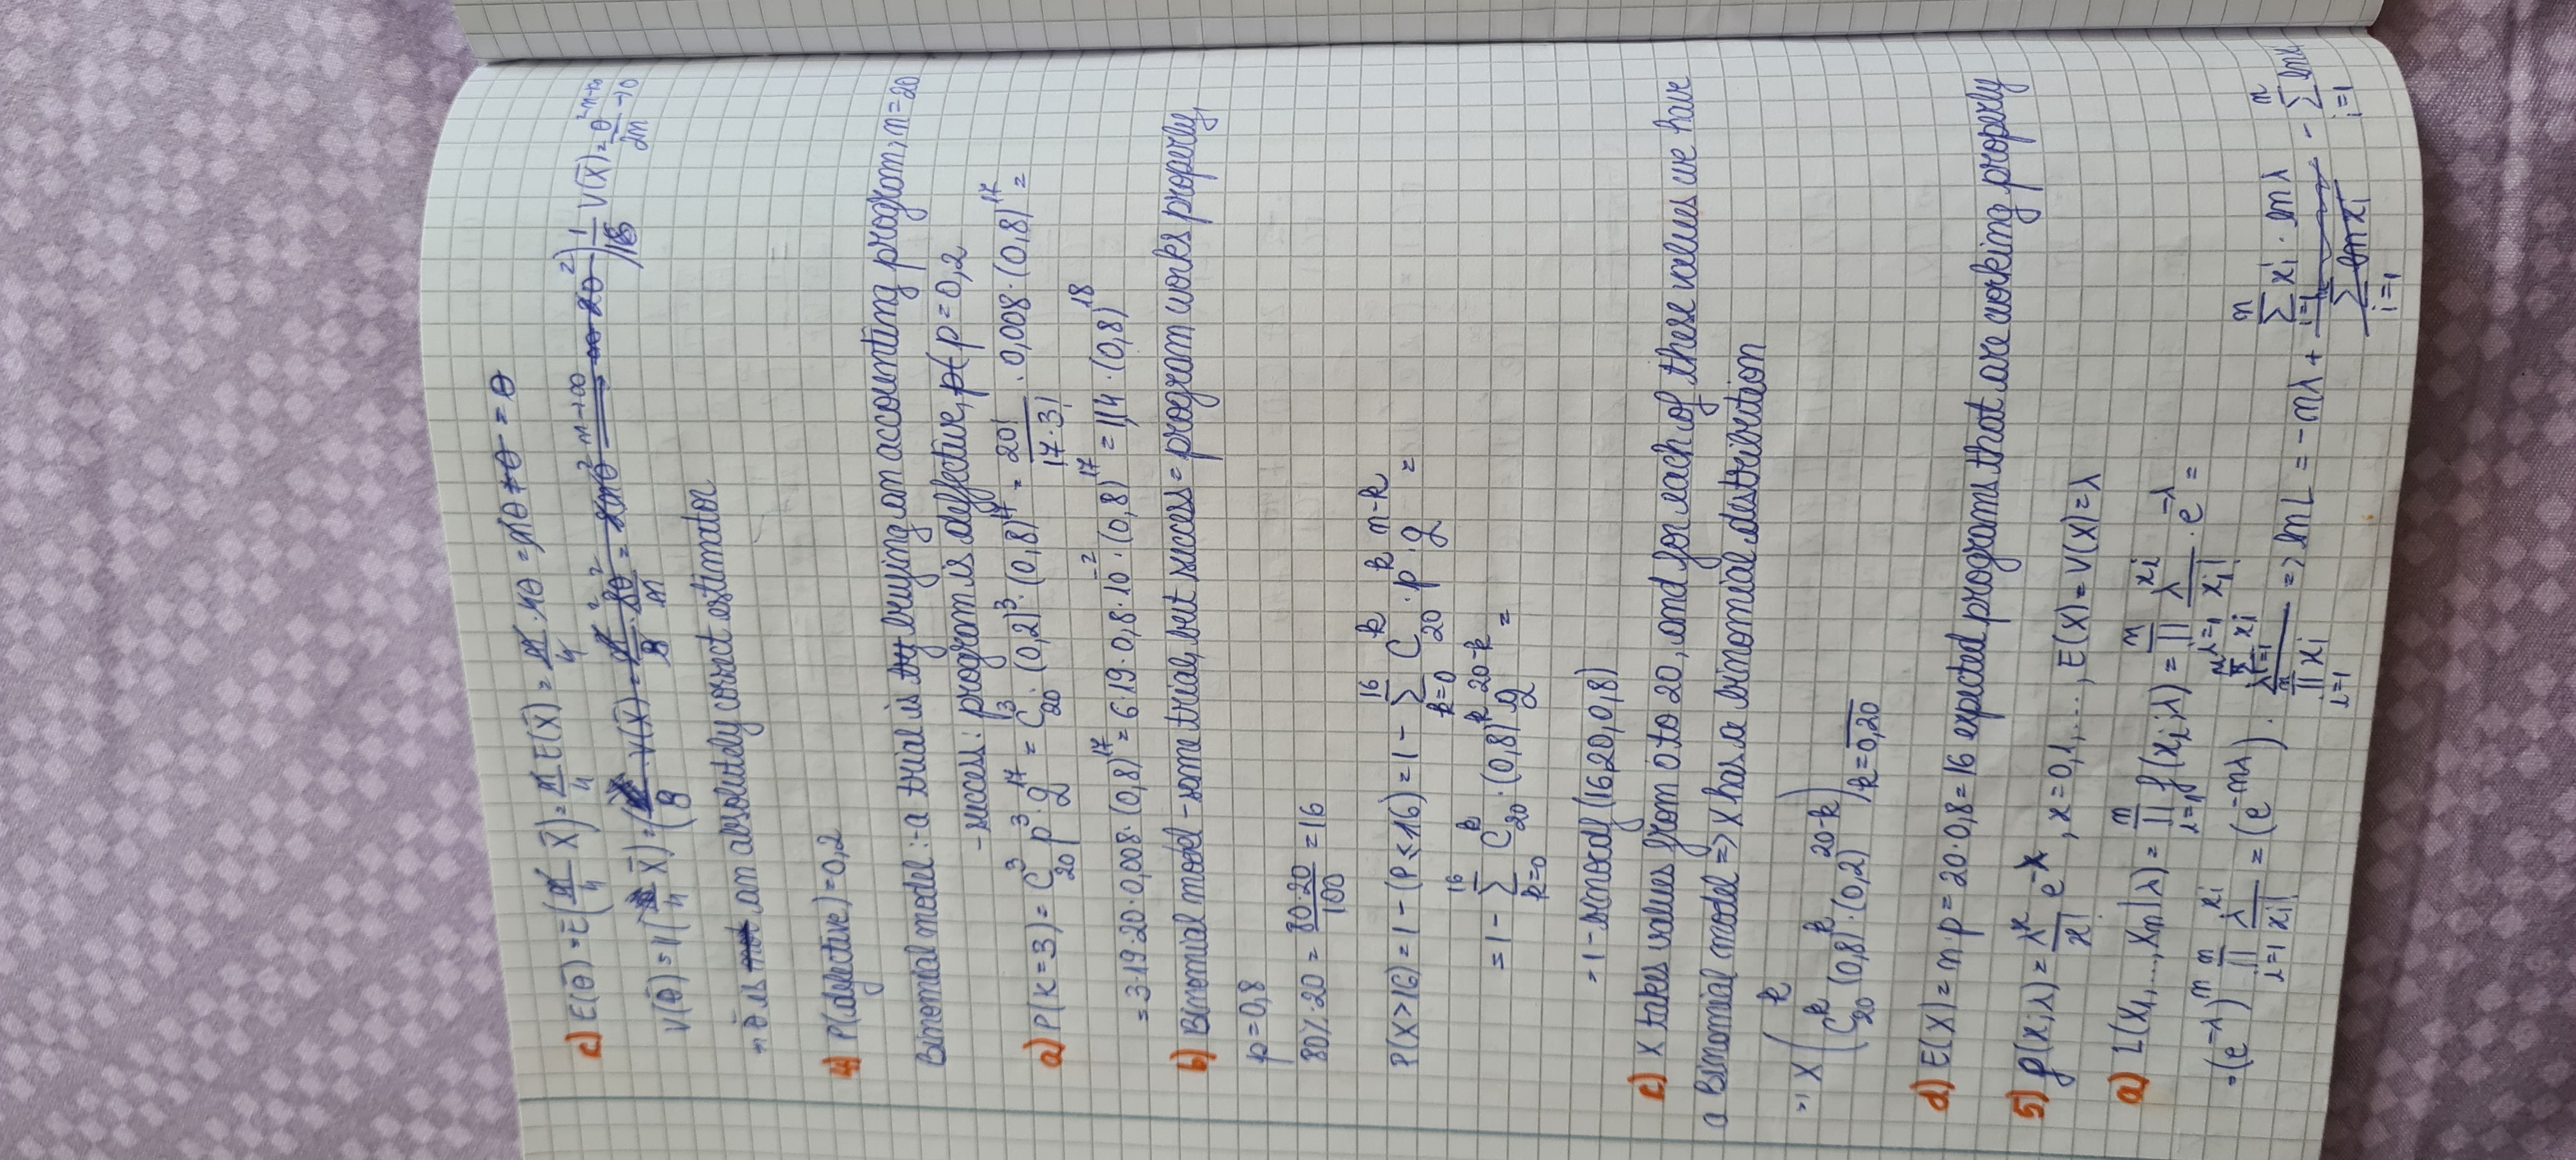 c) E(θ̄) = E(n̶/4 X̄) = n̶/4 E(X̄) = n̶/4 · 4θ = n̶θ̶ ≠̶ θ̶ = θ
V(θ̄) = V(1/4 X̄) = (̶1̶/̶8̶ · V̶(̶X̶̄)̶ = n̶/̶8̶ · 8̶θ̶²̶/̶n̶ = 2̶n̶θ̶²̶ n→∞ ∞̶ 2̶θ̶²̶)̶ 1/16 V(X̄) = θ²/2n n→∞ → 0
⇒ θ̄ is n̶o̶t̶ an absolutely correct estimator
4) P(defective) = 0,2
Binomial model: - a trial is t̶r̶y̶ buying an accounting program; n = 20
- success: program is deffective, p̶(̶ p = 0,2
a) P(k = 3) = C₂₀³ p³ · q¹⁷ = C₂₀³ · (0,2)³ · (0,8)¹⁷ = 20!/17·3! · 0,008 · (0,8)¹⁷ =
= 3·19·20·0,008·(0,8)¹⁷ = 6·19·0,8·10⁻²·(0,8)¹⁷ = 1,14·(0,8)¹⁸
b) Binomial model - same trial, but success = program works properly,
p = 0,8
80%·20 = 80·20/100 = 16
P(X>16) = 1 - (P ≤ 16) = 1 - Σ_{k=0}^{16} C₂₀ᵏ · pᵏ · qⁿ⁻ᵏ =
= 1 - Σ_{k=0}^{16} C₂₀ᵏ · (0,8)ᵏ q²⁰⁻ᵏ =
= 1 - binocdf(16,20,0,8)
c) X takes values from 0 to 20, and for each of these values we have
a Binomial model => X has a binomial distribution
⇒ X ( k / C₂₀ᵏ (0,8)ᵏ · (0,2)²⁰⁻ᵏ ) k = 0,20
d) E(X) = n·p = 20·0,8 = 16 expected programs that are working properly
5) f(x;λ) = λˣ/x! e^{-λ}, x = 0,1,..., E(X) = V(X) = λ
a) L(X₁,...,Xₙ|λ) = Π_{i=1}^{n} f(xᵢ;λ) = Π_{i=1}^{n} λ^{xᵢ}/xᵢ! · e^{-λ} =
= (e^{-λ})ⁿ Π_{i=1}^{n} λ^{xᵢ}/xᵢ! = (e^{-nλ}) · λ^{Σ_{i=1}^{n} xᵢ}/Π_{i=1}^{n} xᵢ => ln L = -nλ + Σ_{i=1}^{n} xᵢ · ln λ Σ̶_{i=1}^{n} l̶n̶ x̶ᵢ̶ - Σ_{i=1}^{n} ln x